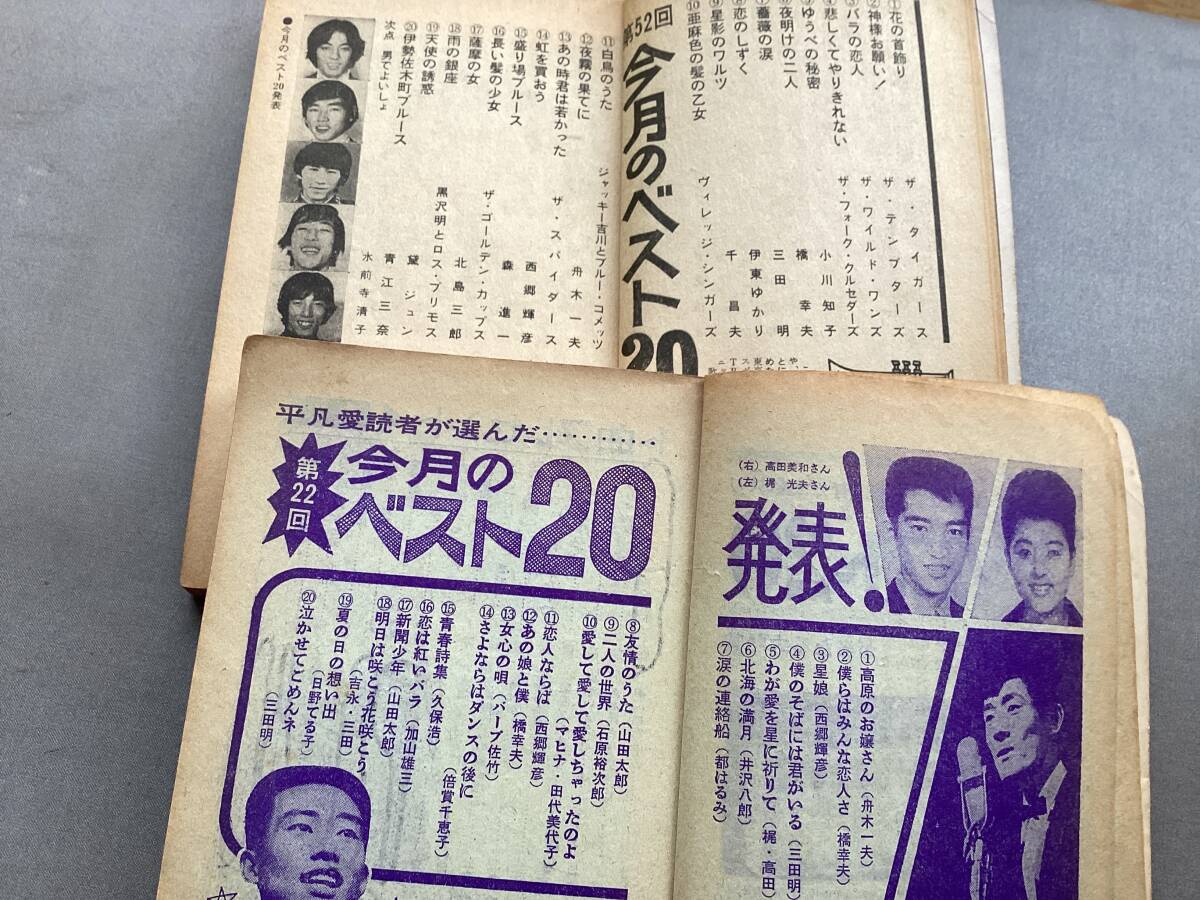 ①花の首飾り
ザ・タイガース
②神様お願い！
ザ・テンプターズ
③バラの恋人
ザ・ワイルド・ワンズ
④悲しくてやりきれない
ザ・フォーク・クルセダーズ
⑤ゆうべの秘密
小川知子
⑥夜明けの二人
橋幸夫
⑦薔薇の涙
三田明
⑧恋のしずく
伊東ゆかり
⑨星影のワルツ
千昌夫
⑩亜麻色の髪の乙女
ヴィレッジ・シンガーズ
第52回
今月のベスト20
⑪白鳥のうた
ジャッキー吉川とブルー・コメッツ
⑫夜霧の果てに
舟木一夫
⑬あの時君は若かった
ザ・スパイダース
⑭虹を買おう
西郷輝彦
⑮盛り場ブルース
森進一
⑯長い髪の少女
ザ・ゴールデン・カップス
⑰薩摩の女
北島三郎
⑱雨の銀座
黒沢明とロス・プリモス
⑲天使の誘惑
黛ジュン
⑳伊勢佐木町ブルース
青江三奈
次点 男でよいしょ
水前寺清子
●今月のベスト20発表
平凡愛読者が選んだ…………
第22回
今月の
ベスト20
発表！
(右) 高田美和さん
(左) 梶 光夫さん
①高原のお嬢さん(舟木一夫)
②僕らはみんな恋人さ(橋幸夫)
③星娘(西郷輝彦)
④僕のそばには君がいる(三田明)
⑤わが愛を星に祈りて(梶・高田)
⑥北海の満月(井沢八郎)
⑦涙の連絡船(都はるみ)
⑧友情のうた(山田太郎)
⑨二人の世界(石原裕次郎)
⑩愛して愛して愛しちゃったのよ
(マヒナ・田代美代子)
⑪恋人ならば(西郷輝彦)
⑫あの娘と僕(橋幸夫)
⑬女心の唄(バーブ佐竹)
⑭さよならはダンスの後に
(倍賞千恵子)
⑮青春詩集(久保浩)
⑯恋は紅いバラ(加山雄三)
⑰新聞少年(山田太郎)
⑱明日は咲こう花咲こう
(吉永・三田)
⑲夏の日の想い出
(日野てる子)
⑳泣かせてごめんネ
(三田明)